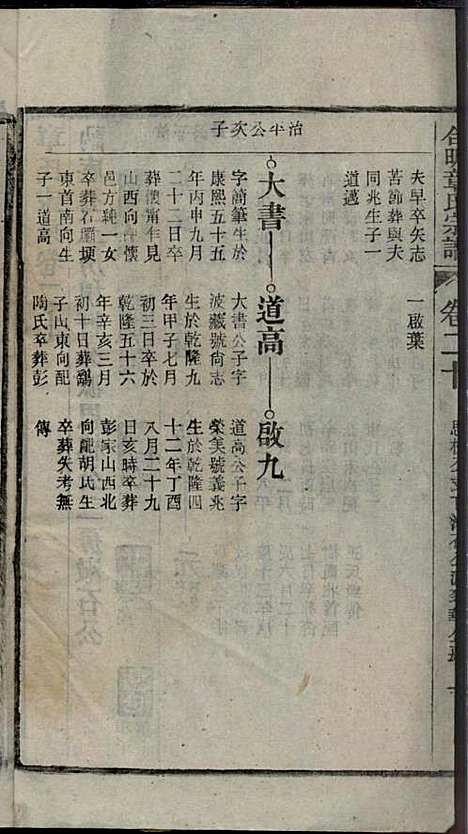 夫早卒矢志
苦節葬與夫
同兆生子一
道邁
一啟葉
治平公次子
大書
字簡筆生於
康熙五十五
年丙申九月
二十二日卒
葬懷甯年見
山西向
邑方
卒葬石
東首南向生
子一道高
道高
大書公子字
波藏號尚志
生於乾隆九
年甲子七月
初三日卒於
乾隆五十六
年辛亥三月
初十日葬鷄
子山東向配
陶氏卒葬彭
啟九
道高公子字
榮美號義兆
生於乾隆四
十二年丁酉
八月二十九
日亥時卒葬
彭家山西北
向配胡氏生
卒葬失考無
傳
章氏宗譜
卷二十